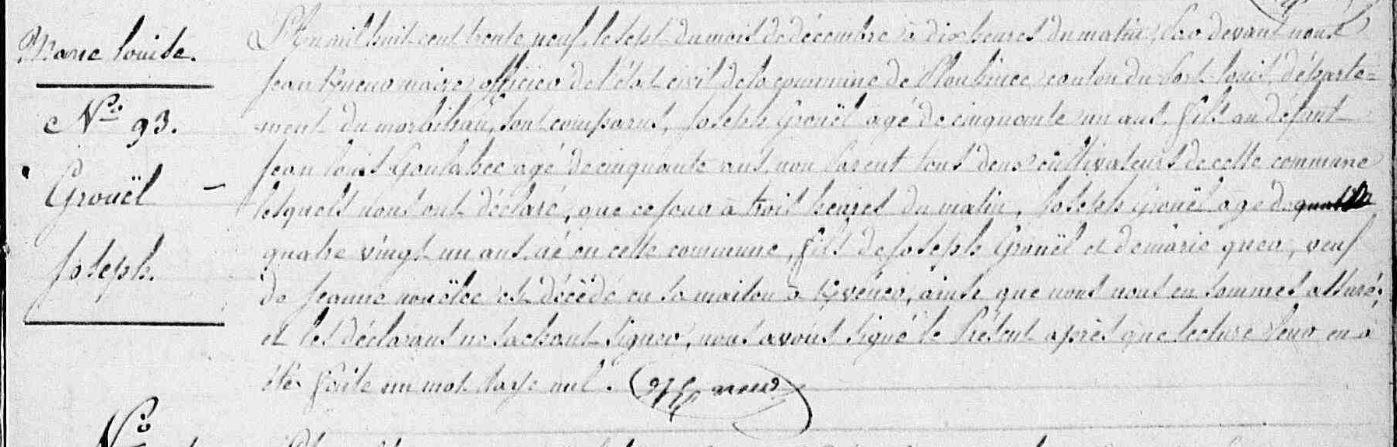 Marie louise.
L'An mil huit cent trente neuf, le sept du mois de décembre à dix heures du matin, Par devant nous
Jean maire officier de l'état civil de la commune de Plouhinec canton du Port-louis, départe=
N.º 93.
ment du morbihan, sont comparus, Joseph Grouël agé de cinquante un ans fils au defunt
Jean louis agé de cinquante ans non Parent tous deux cultivateurs de cette commune
Grouël
lesquels nous ont déclaré, que ce jour à trois heures du matin, Joseph Grouël âgé de
quatre vingt un ans, né en cette commune, fils de Joseph Grouël et de marie veuf
Joseph.
de Jeanne est décédé en sa maison à ainsi que nous nous en sommes assuré;
et les déclarans ne sachant signer, nous avons signé le Présent après que lecture leur en a
été faite un mot rayé nul.
Nº